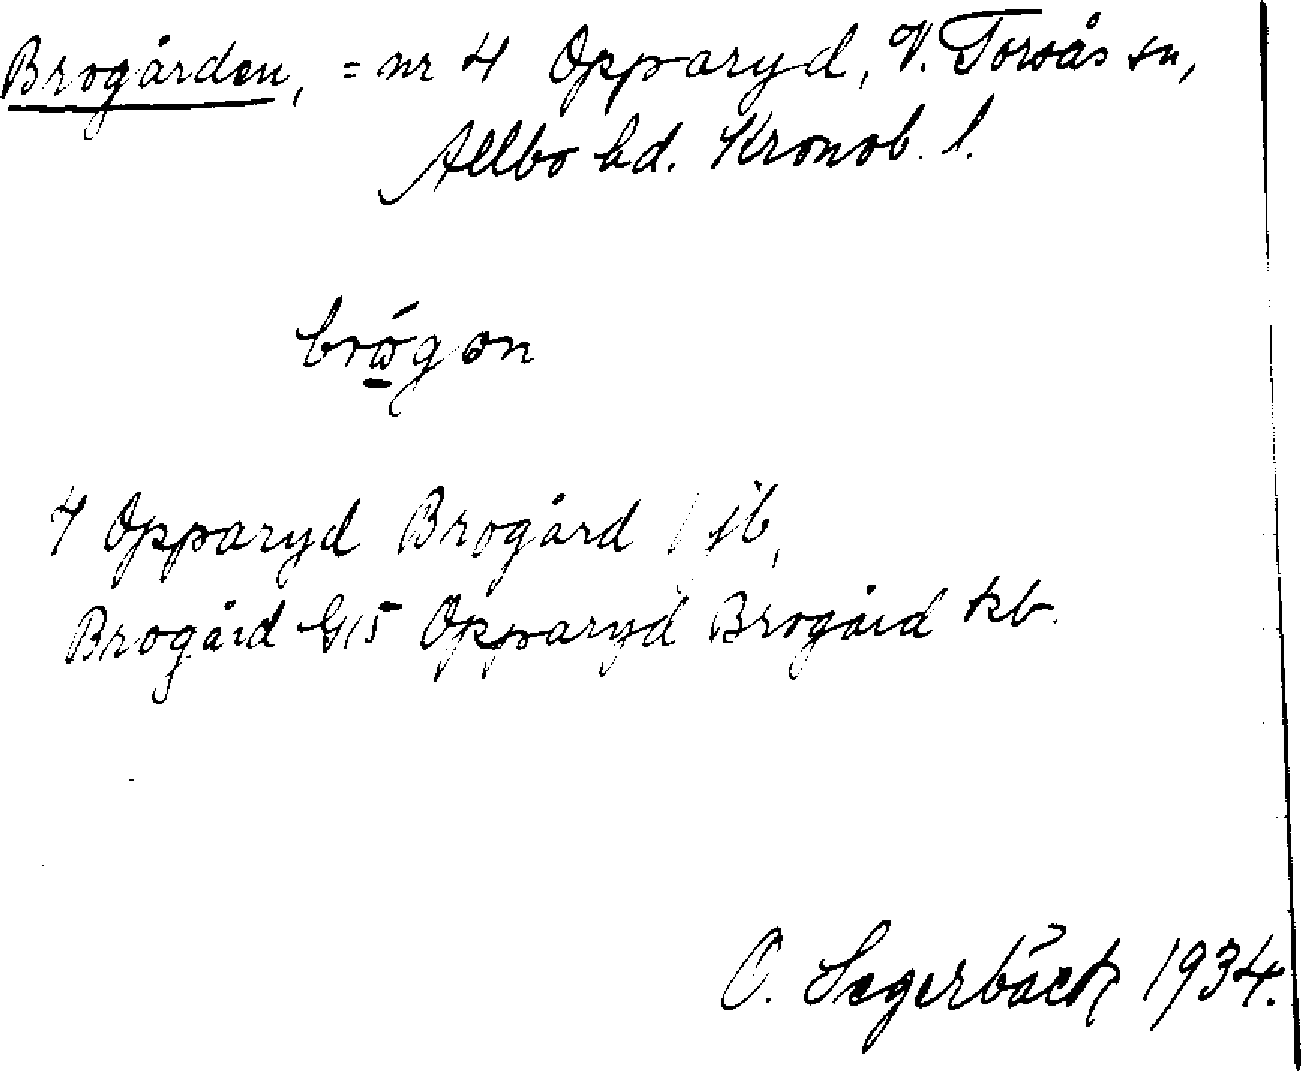 Brogården, = nr 4 Opparyd, V. Torsås sn,
Allbo hd. Kronob. l.
4 Opparyd Brogård 1 jb,
Brogård G15 Opparyd Brogård kb.
O. Segerbäck 1934.